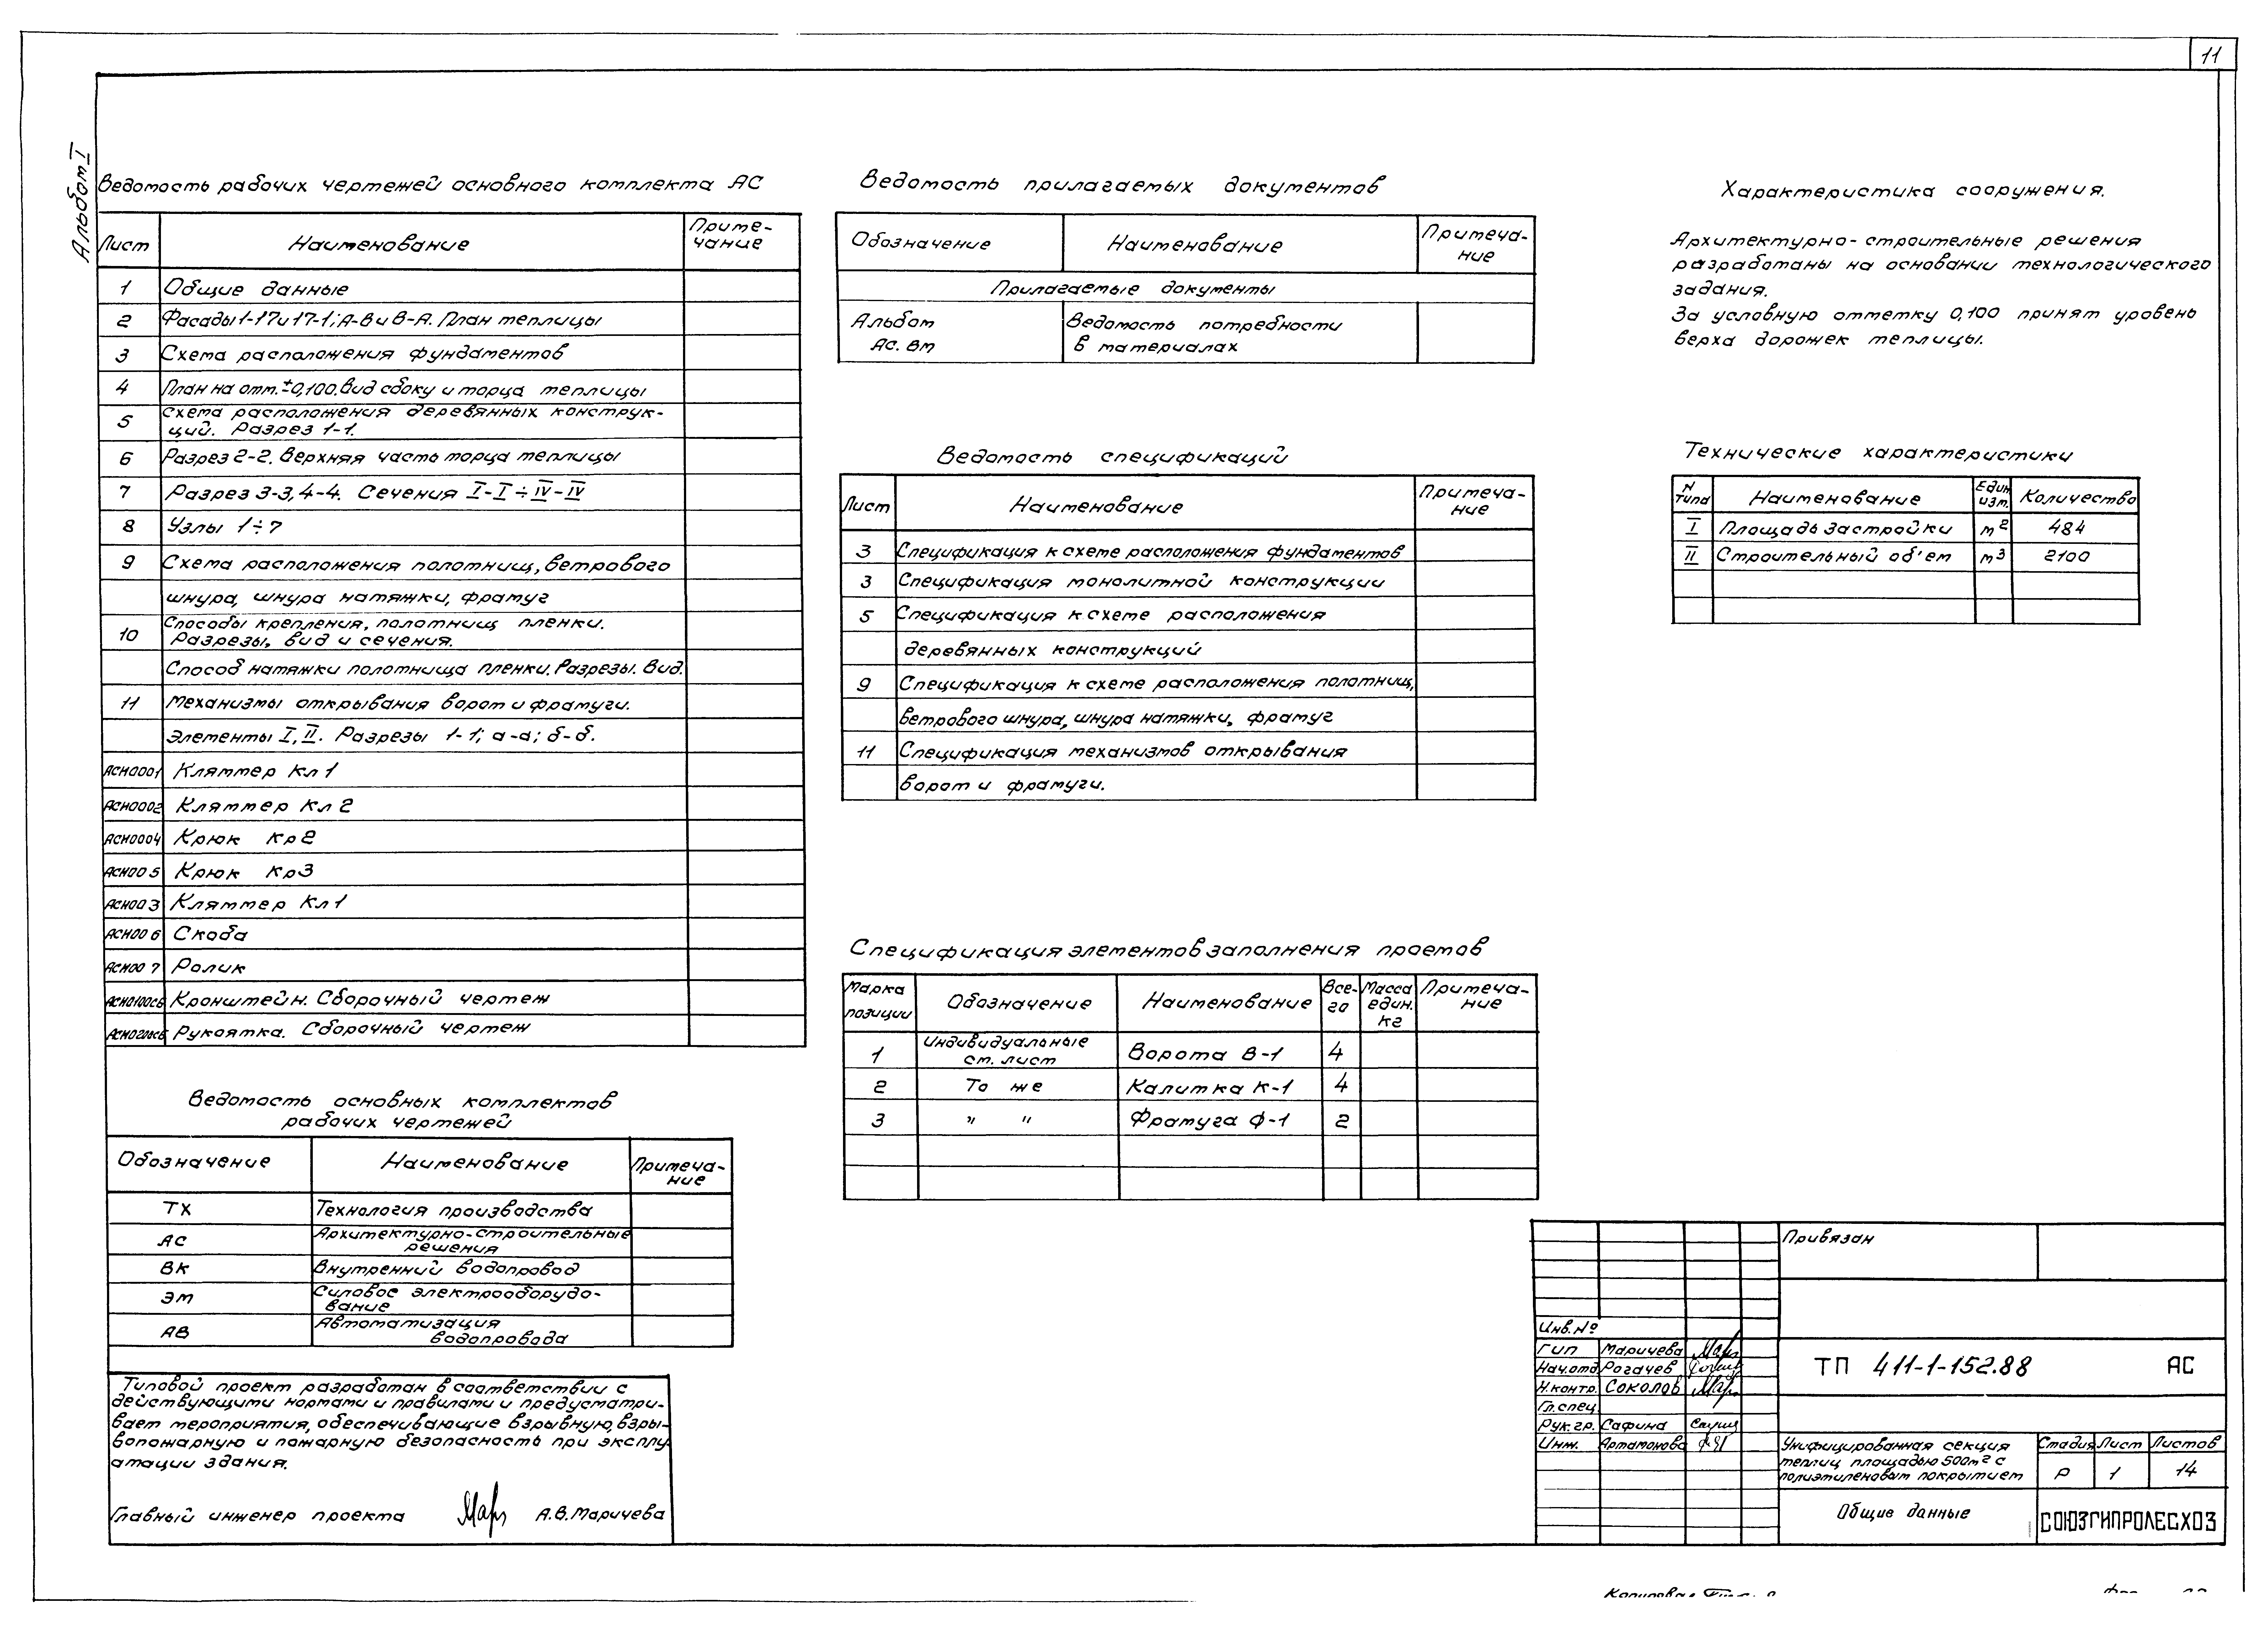 11
Альбом I
Ведомость рабочих чертежей основного комплекта АС
Лист Наименование Приме-
чание
1 Общие данные
2 Фасады 1-17 и 17-1; А-В и В-А. План теплицы
3 Схема расположения фундаментов
4 План на отм. ±0,100. Вид сбоку и торца теплицы
5 Схема расположения деревянных конструк-
ций. Разрез 1-1.
6 Разрез 2-2. Верхняя часть торца теплицы
7 Разрез 3-3, 4-4. Сечения I-I ÷ IV-IV
8 Узлы 1÷7
9 Схема расположения полотнищ, ветрового
шнура, шнура натяжки, фрамуг
10 Способы крепления, полотнищ пленки.
Разрезы, вид и сечения.
Способ натяжки полотнища пленки. Разрезы. Вид.
11 Механизмы открывания ворот и фрамуги.
Элементы I, II. Разрезы 1-1; а-а; б-б.
АСИ0001 Кляммер Кл 1
АСИ0002 Кляммер Кл 2
АСИ0004 Крюк Кр2
АСИ00 5 Крюк Кр3
АСИ00 3 Кляммер Кл 1
АСИ00 6 Скоба
АСИ00 7 Ролик
АСИ0100СБ Кронштейн. Сборочный чертеж
АСИ0200СБ Рукоятка. Сборочный чертеж
Ведомость основных комплектов
рабочих чертежей
Обозначение Наименование Примеча-
ние
ТХ Технология производства
АС Архитектурно-строительные
решения
ВК Внутренний водопровод
ЭМ Силовое электрооборудо-
вание
АВ Автоматизация
водопровода
Типовой проект разработан в соответствии с
действующими нормами и правилами и предусматри-
вает мероприятия, обеспечивающие взрывную, взры-
вопожарную и пожарную безопасность при эксплу
атации здания.
Главный инженер проекта А.В. Маричева
Ведомость прилагаемых документов
Обозначение Наименование Примеча-
ние
Прилагаемые документы
Альбом Ведомость потребности
АС. ВМ в материалах
Ведомость спецификаций
Лист Наименование Примеча-
ние
3 Спецификация к схеме расположения фундаментов
3 Спецификация монолитной конструкции
5 Спецификация к схеме расположения
деревянных конструкций
9 Спецификация к схеме расположения полотнищ,
ветрового шнура, шнура натяжки, фрамуг
11 Спецификация механизмов открывания
ворот и фрамуги.
Спецификация элементов заполнения проемов
Марка позиции Обозначение Наименование Все-
го Масса един. кг Примеча-
ние
1 Индивидуальные
см. лист Ворота В-1 4
2 То же Калитка К-1 4
3 " " Фрамуга Ф-1 2
Характеристика сооружения.
Архитектурно-строительные решения
разработаны на основании технологического
задания.
За условную отметку 0,100 принят уровень
верха дорожек теплицы.
Технические характеристики
N типа Наименование Един. изм. Количество
I Площадь застройки м² 484
II Строительный об'ем м³ 2100
Привязан
Инв. №
ГИП Маричева
Нач.отд Рогачев
Н.контр. Соколов
Гл.спец
Рук.гр. Сафина
Инж. Артамонова
ТП 411-1-152.88 АС
Унифицированная секция
теплиц площадью 500м² с
полиэтиленовым покрытием
Стадия Лист Листов
Р 1 14
Общие данные
СОЮЗГИПРОЛЕСХОЗ